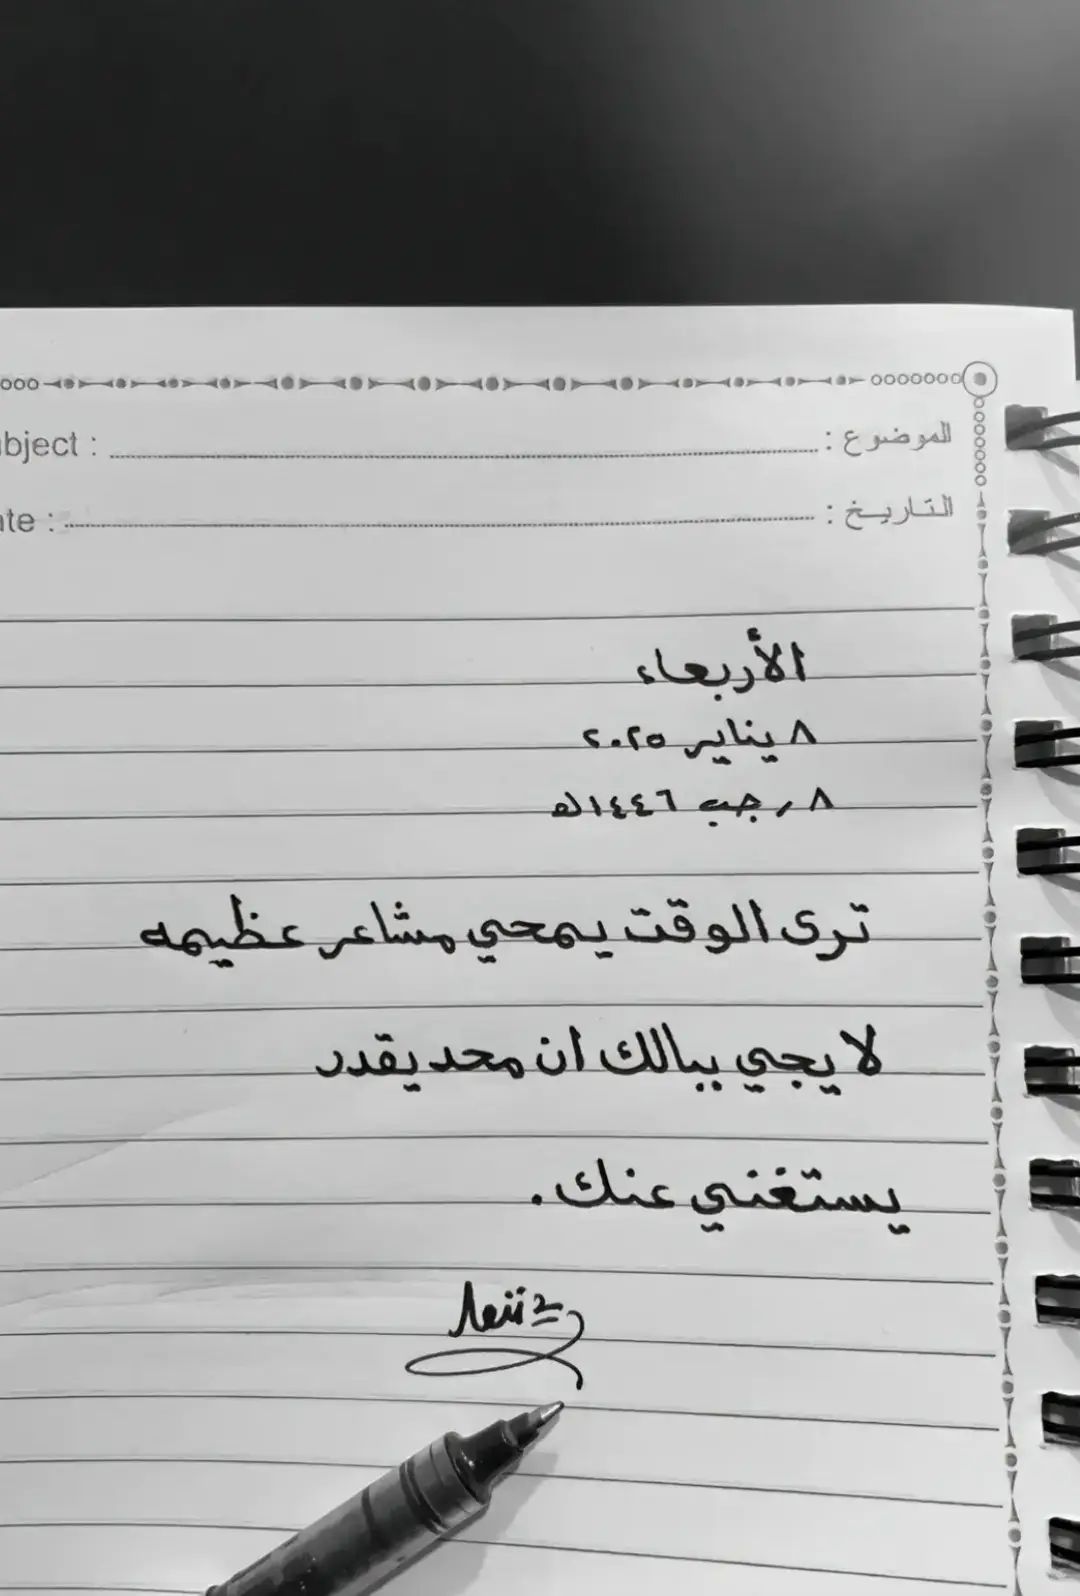 Subject :
الموضوع :
Date :
التاريخ :
الأربعاء
٨ يناير ٢٠٢٥
٨ رجب ١٤٤٦ه
ترى الوقت يمحي مشاعر عظيمه
لا يجي ببالك ان محد يقدر
يستغني عنك.